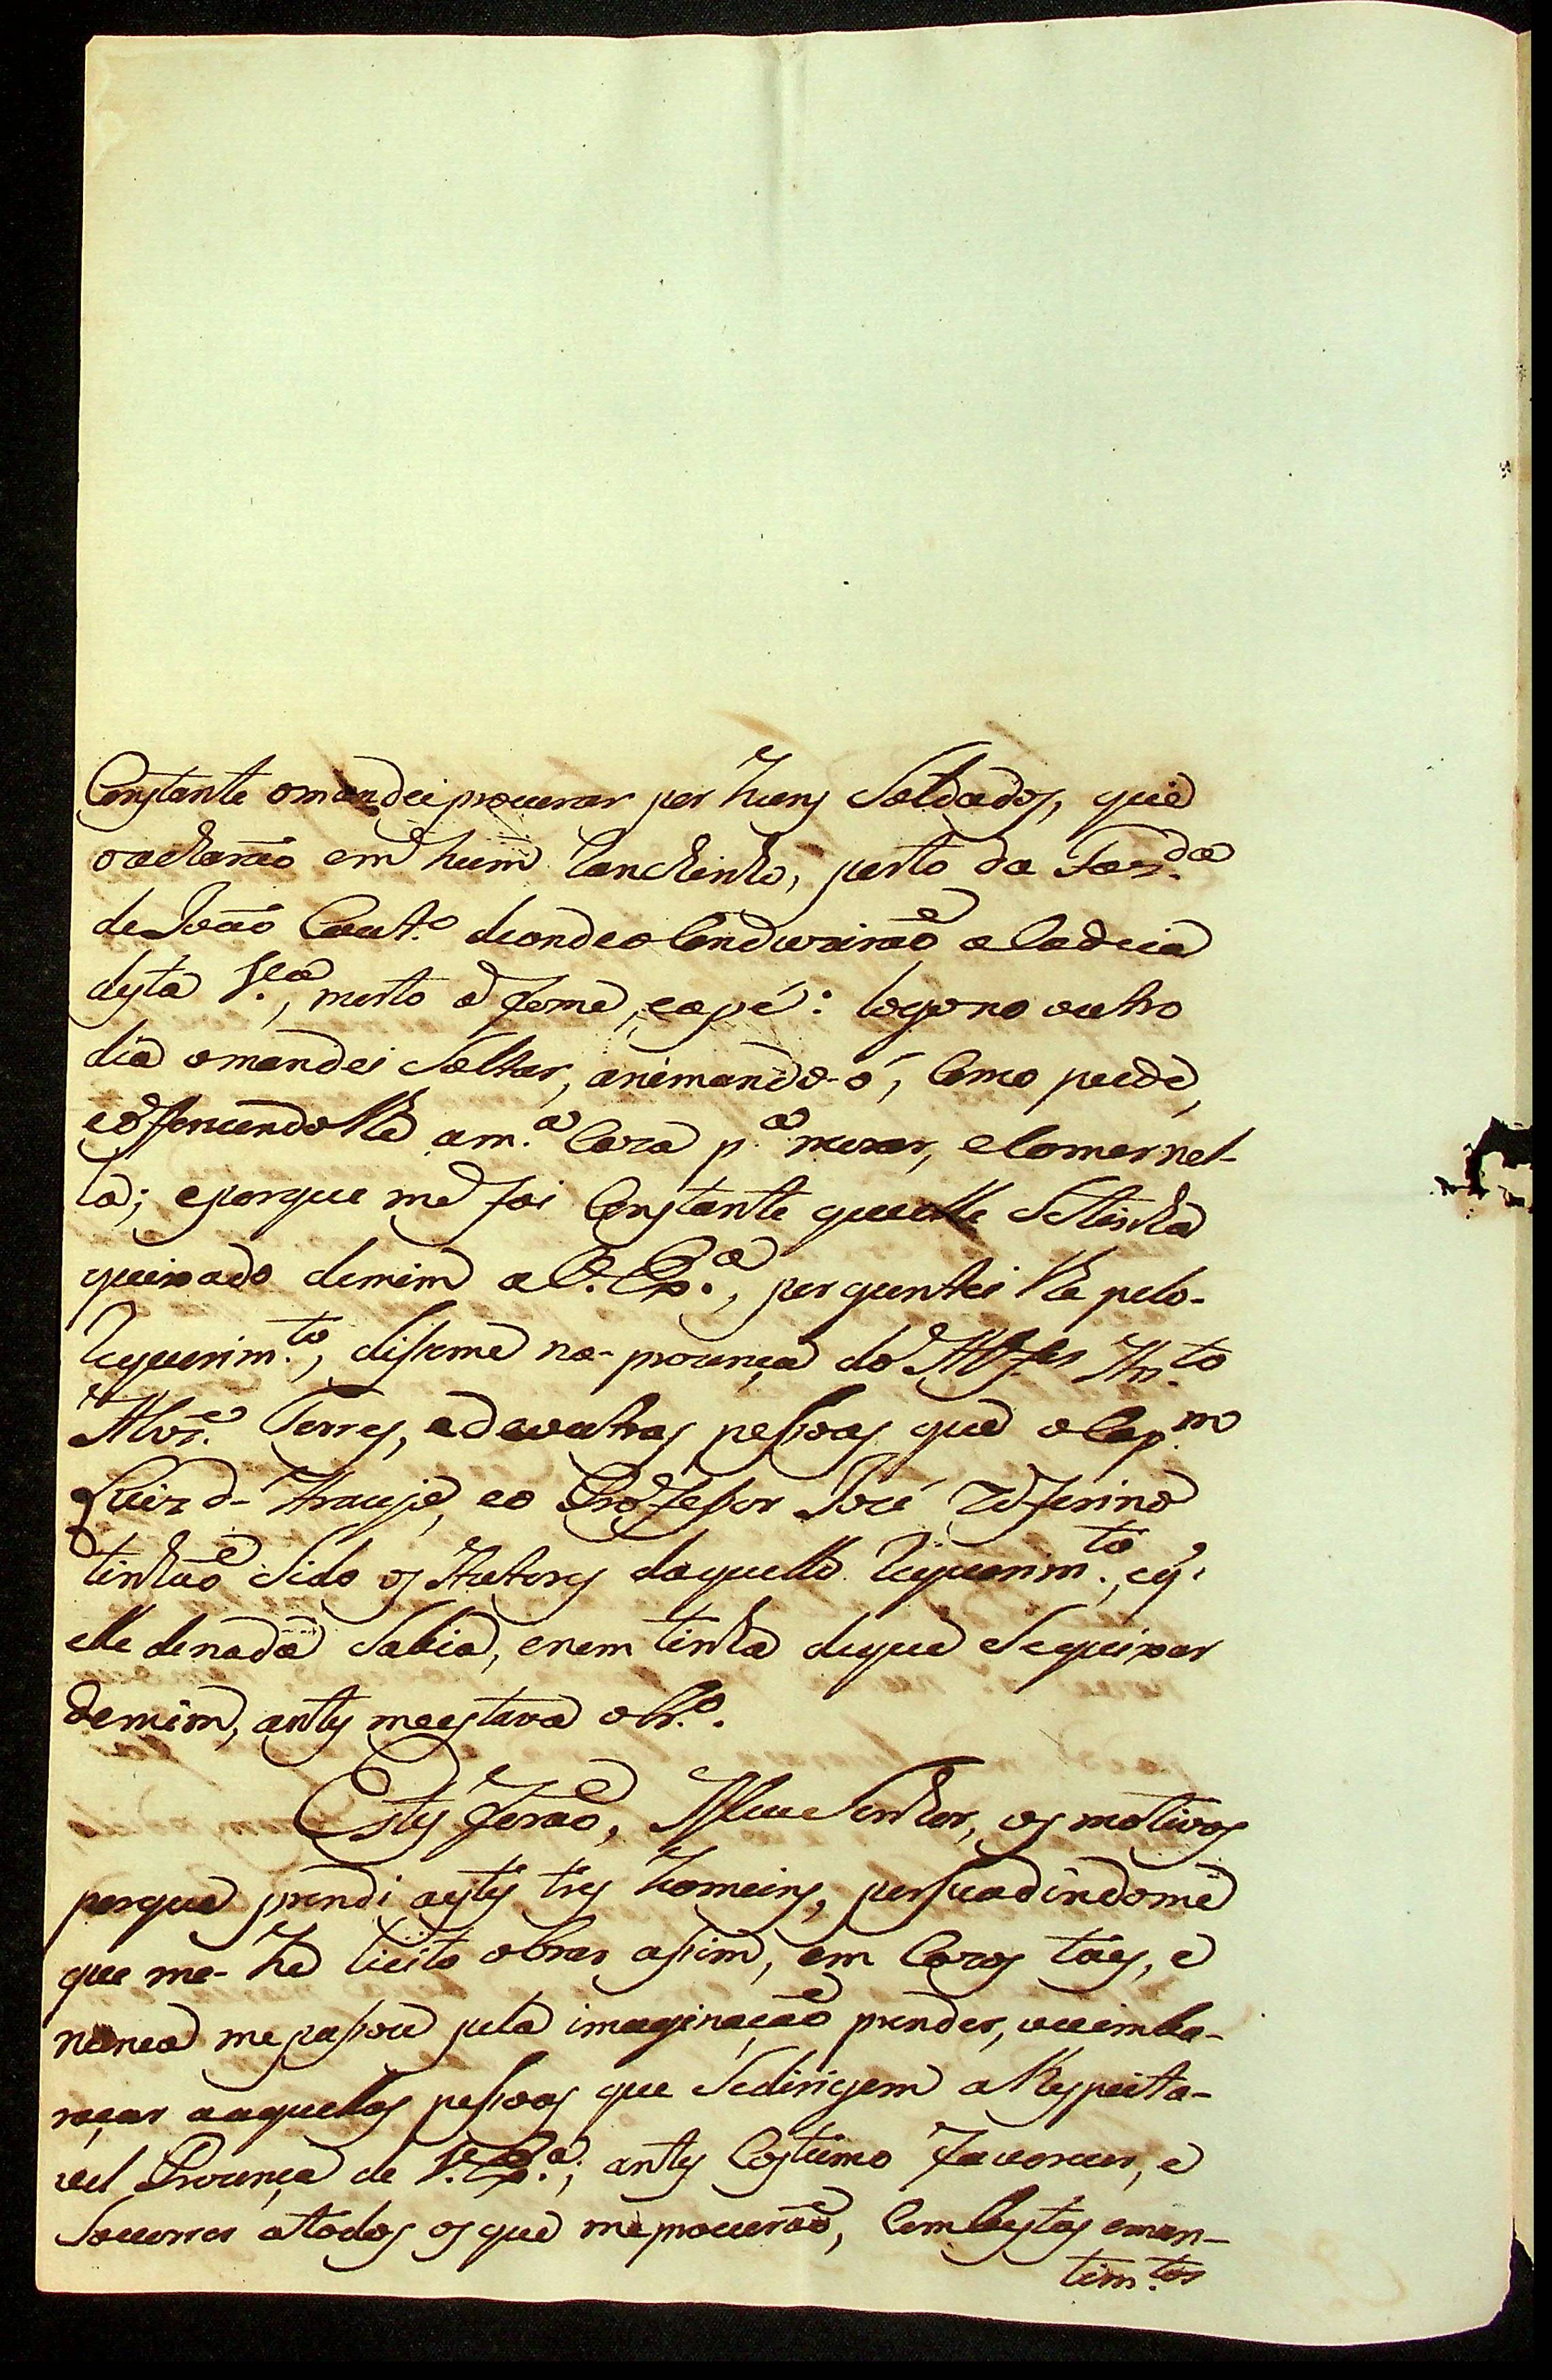 Constante omandei procurar por huns Soldados, que
oacharão em hum ranchinho, perto da Faz.da
de João Cout.o deonde o Conduzirão a Cadeia
desta V.a, morto a fome, eapé: logo no outro
dia omandei Soltar, animando-o, Como pude,
eofferecendolhe am.a Caza p.a morar, eComer nel-
la; eporque me foi Constante que elle Setinha
queixado demim aV. Ex.a, perguntei lhe pelo-
requerim.to, disseme na-prezença do Alferes An.to
Alvz.e Torres, edeoutras pessoas que o Cap.m
Luiz d- Araujo, eo Professor José Zeferino
tinhão Sido os Autores daquelle requerim.to, eq'
elle denada Sabia, enem tinha deque Sequixar
demim, antes meestava obr.o.
Estes forão, Meu Senhor, os motivos
porque prendi aestes tres homeins, persuadindome
que me-he licito obrar assim, em Cazos táes, e
nunca mepassou pela imaginação prender, ouimba-
raçar aaquellas pessoas que Sedirigem aRespeita-
vel Prezença de V. Ex.a; antes Costumo favorecer, e
Socorrer atodos osque meprocurão, Combestas eman-
tim.tos